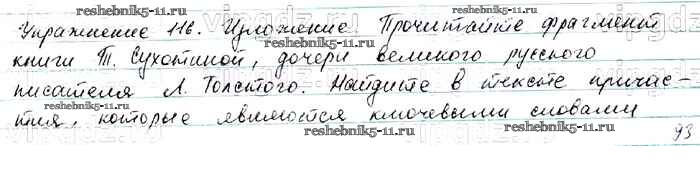 reshebnik5-11.ru reshebnik5-11.ru
Упражнение 116. Изложение Прочитайте фрагмент
книги Т. Сухотиной, дочери великого русского
reshebnik5-11.ru
писателя Л. Толстого. Найдите в тексте причас-
reshebnik5-11.ru
тия, которые являются ключевыми словами
reshebnik5-11.ru
93